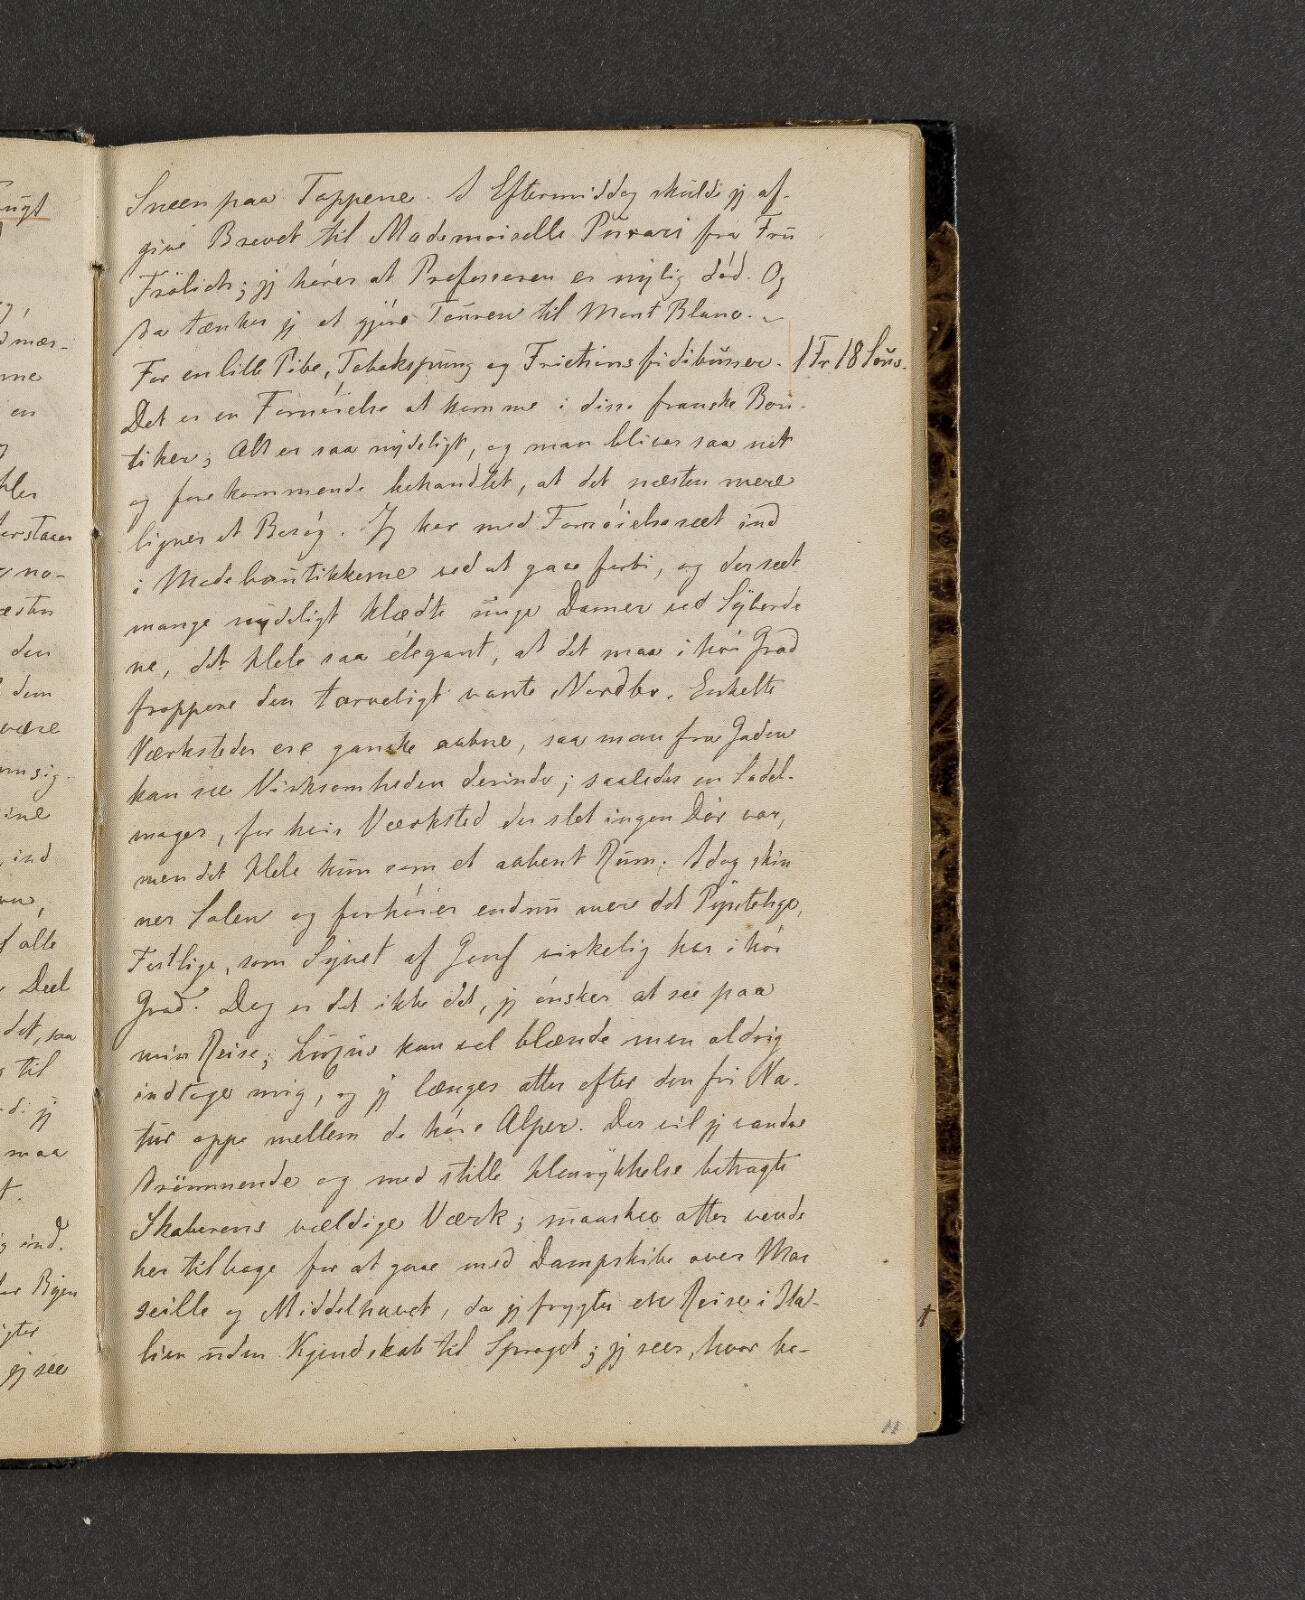 Sneen paa Toppene. I Eftermiddag skulde jeg af-
give Brevet til Mademoiselle Pürari fra Frü
Frölich; jeg hører at Professoren er nylig død. Og
da tænker jeg at gjøre Touren til Mont Blanc. –
For en lille Pibe, Tobakspung og Frictionsfidibusser. 1 Fr. 18 Sous.
Det er en Fornøielse at komme i disse franske Bou-
tiker; Alt er saa nydeligt, og man bliver saa net
og forekommende behandlet, at det næsten mere
ligner et Besøg. Jeg har med Fornøielse seet ind
i Modeboutikkerne ved at gaae forbi, og der seet
mange nydeligt klædte unge Damer ved Syborde
ne, det Hele saa élegant, at det maa i høi Grad
frappere den tarveligt vante Nordbo. Enkelte
Værksteder ere ganske aabne, saa man fra Gaden
kan see Virksomheden derinde; saaledes en Sadel-
mager, for hvis Værksted der slet ingen Dør var,
men det Hele kun som et aabent Rum. Idag skin
ner Solen og forhøier endnu mere det Pyntelige,
Festlige, som Synet af Genf virkelig har i høi
Grad. Dog er det ikke det, jeg ønsker at see paa
min Reise; Luxus kan vel blænde men aldrig
indtage mig, og jeg længes atter efter den fri Na-
tur oppe mellem de høie Alper. Der vil jeg vandre
drømmende og med stille Henrykkelse betragte
Skaberens vældige Værk; maaskee atter vende
her tilbage for at gaae med Dampskibe over Mar
seille og Middelhavet, da jeg frygter en Reise i Ita-
lien uden Kjendskab til Sproget; jeg seer, hvor be-
11